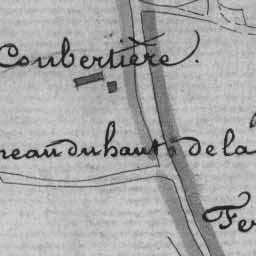 Coubertière.
neau du haut de la
Fer